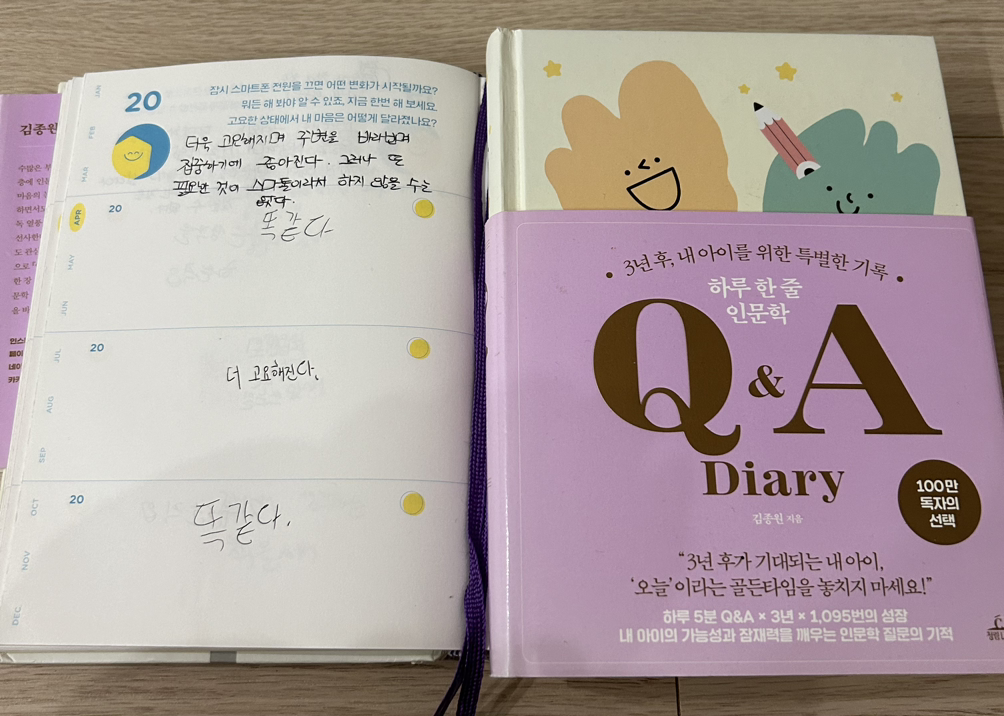 김종원
수많은 부
출에 인문
마음의
하면서도
독 열풍
선사한
도 관심
으로
한 장
문학
을 바
인스
페이
네이
카카
JAN
FEB
MAR
APR
MAY
JUN
JUL
AUG
SEP
OCT
NOV
DEC
20
잠시 스마트폰 전원을 끄면 어떤 변화가 시작될까요?
뭐든 해 봐야 알 수 있죠. 지금 한번 해 보세요.
고요한 상태에서 내 마음은 어떻게 달라졌나요?
더욱 고요해지며 주변을 바라보며
집중하기에 좋아진다. 그러나 또
필요한 것이 스마트폰이라서 하지 않을 수는
없다.
20
똑같다
20
더 고요해진다.
20
똑같다.
3년 후, 내 아이를 위한 특별한 기록
하루 한 줄
인문학
Q & A
Diary
김종원 지음
100만
독자의
선택
“3년 후가 기대되는 내 아이,
‘오늘’이라는 골든타임을 놓치지 마세요!”
하루 5분 Q&A × 3년 × 1,095번의 성장
내 아이의 가능성과 잠재력을 깨우는 인문학 질문의 기적